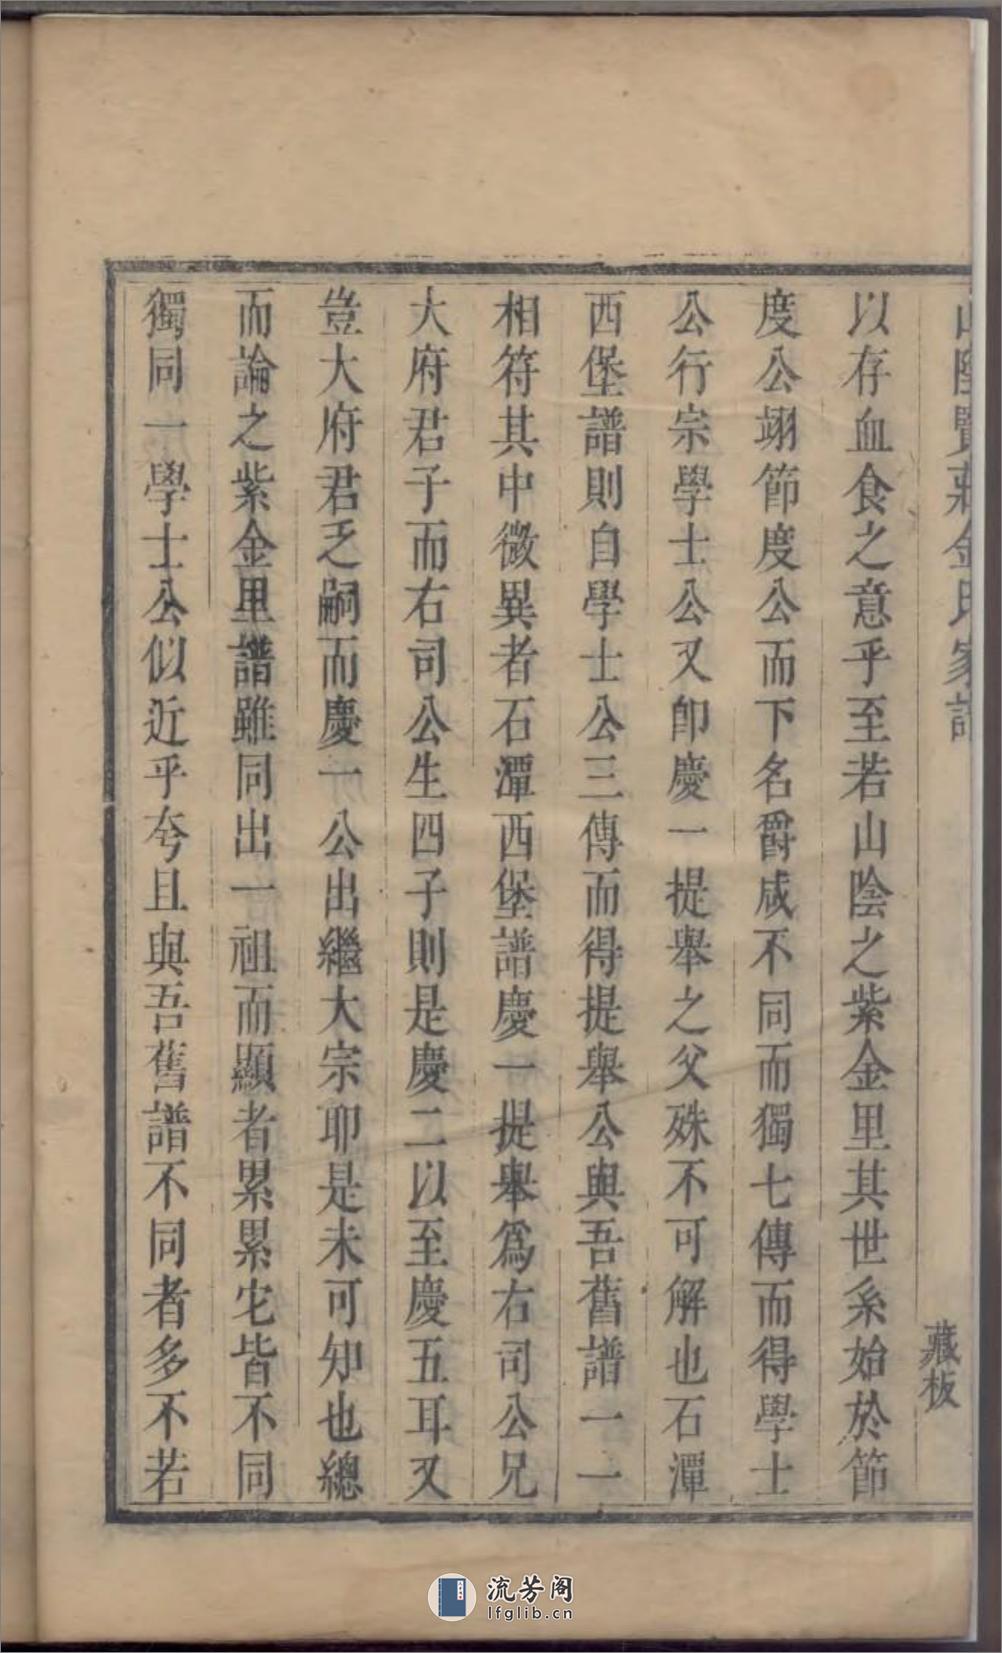 山陰賢莊金氏家譜
藏板
以存血食之意乎至若山陰之紫金里其世系始於節
度公翊節度公而下名爵咸不同而獨七傳而得學士
公行宗學士公又卽慶一提舉之父殊不可解也石潭
西堡譜則自學士公三傳而得提舉公與吾舊譜一一
相符其中微異者石潭西堡譜慶一提舉爲右司公兄
大府君子而右司公生四子則是慶二以至慶五耳又
豈大府君乏嗣而慶一公出繼大宗耶是未可知也總
而論之紫金里譜雖同出一祖而顯者累累它皆不同
獨同一學士公似近乎夸且與吾舊譜不同者多不若
流芳阁
lfglib.cn